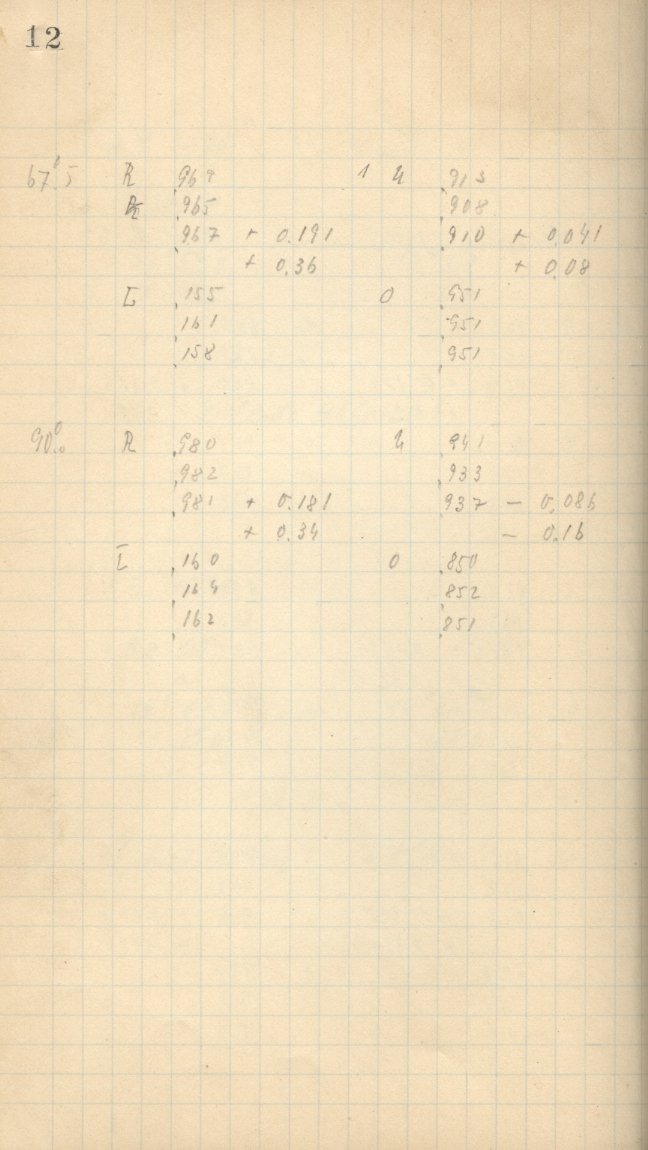 12
67°.5 R ,969 1 U ,913
,965 ,908
,967 + 0.191 ,910 + 0.041
+ 0.36 + 0.08
L ,155 O ,951
,161 ,951
,158 ,951
90°.0 R ,980 U ,941
,982 ,933
,981 + 0.181 ,937 - 0.086
+ 0.34 - 0.16
L ,160 O ,850
,164 ,852
,162 ,851